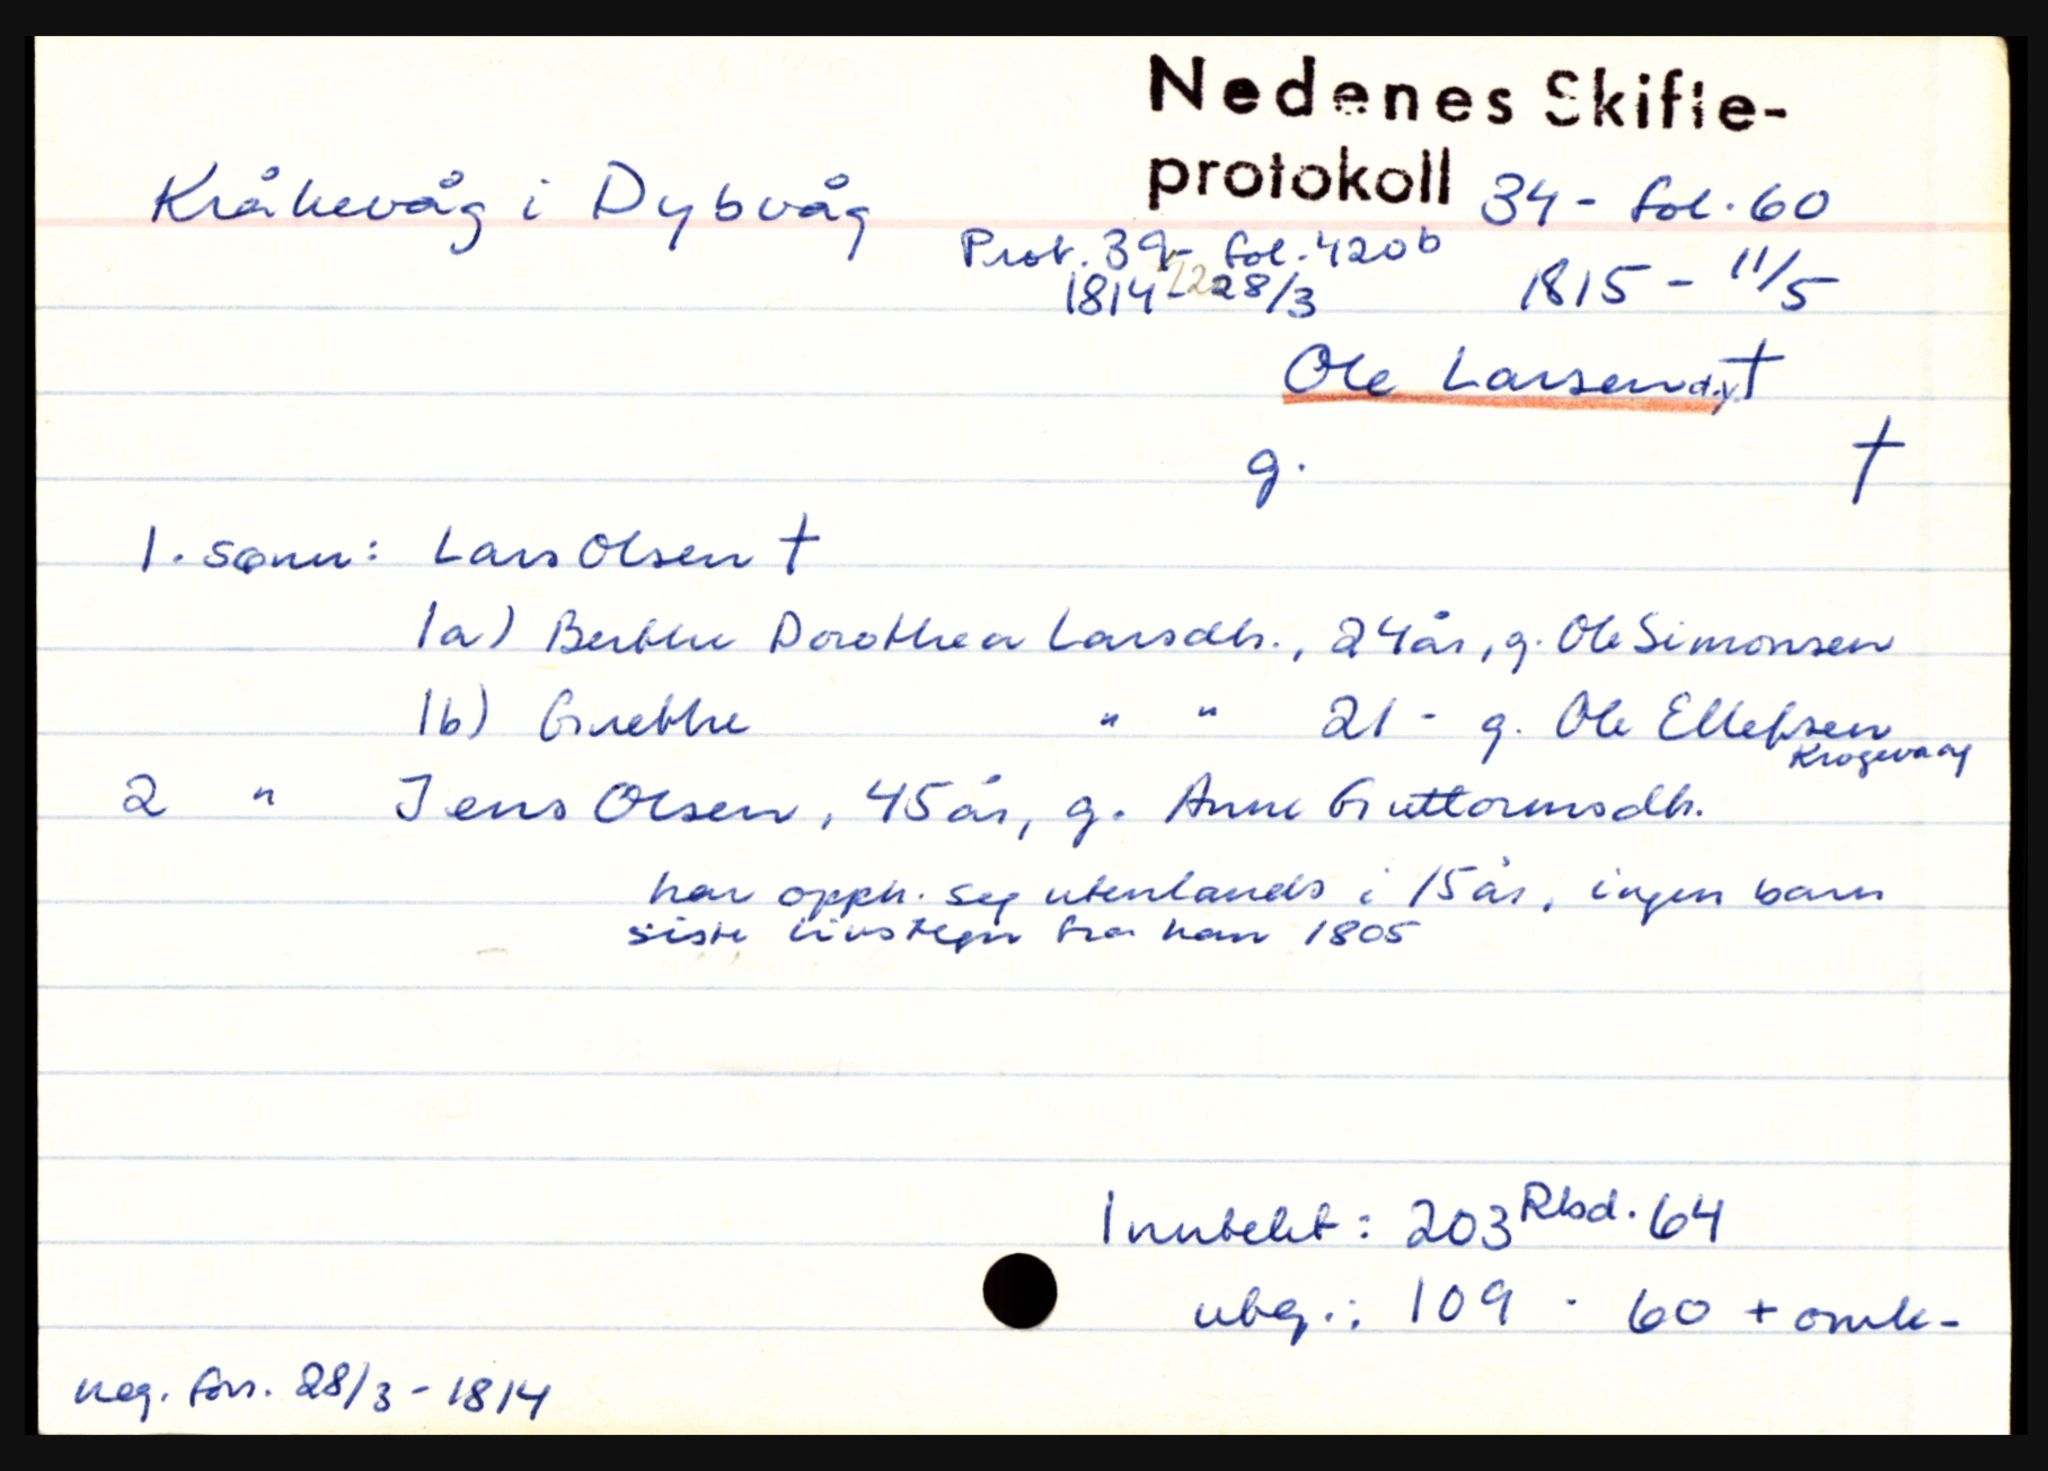 Nedenes Skifte-
protokoll 34 - fol. 60
Kråkevåg i Dybvåg
Prot. 39 - fol. 420b
1814 - 28/3 1815 - 11/5
Ole Larsen d.y. †
g. †
1. sønn: Lars Olsen †
1a) Berthe Dorothea Larsdtr., 24 år, g. Ole Simonsen
1b) Grethe " " 21 - g. Ole Ellefsen
Krogevaag
2 " Jens Olsen, 45 år, g. Anne Guttormsdtr.
har opph. seg utenlands i 15 år, ingen barn
siste livstegn fra han 1805
Inntekt: 203 Rbd. 64
utg.: 109 - 60 + omk-
reg. forr. 28/3 - 1814